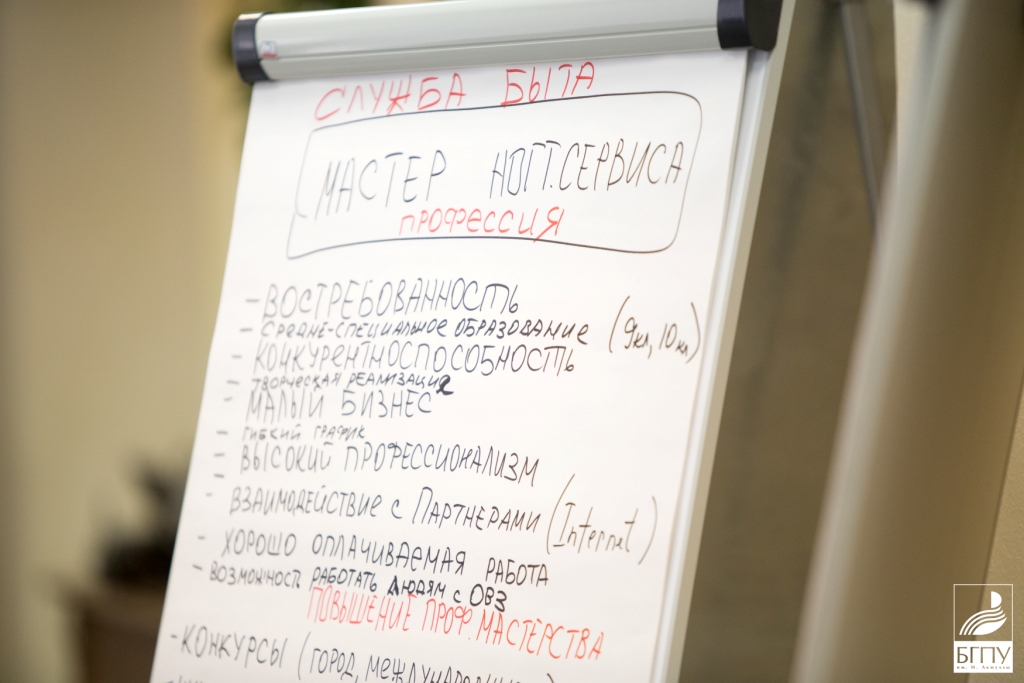 СЛУЖБА БЫТА
МАСТЕР НОГТ.СЕРВИСА
ПРОФЕССИЯ
- ВОСТРЕБОВАННОСТЬ
- СРЕДНЕ-СПЕЦИАЛЬНОЕ ОБРАЗОВАНИЕ (9кл, 10 кл)
- КОНКУРЕНТНОСПОСОБНОСТЬ
- ТВОРЧЕСКАЯ РЕАЛИЗАЦИЯ
- МАЛЫЙ БИЗНЕС
- ГИБКИЙ ГРАФИК
- ВЫСОКИЙ ПРОФЕССИОНАЛИЗМ
- ВЗАИМОДЕЙСТВИЕ С ПАРТНЕРАМИ (Internet)
- ХОРОШО ОПЛАЧИВАЕМАЯ РАБОТА
- ВОЗМОЖНОСТЬ РАБОТАТЬ ЛЮДЯМ С ОВЗ
ПОВЫШЕНИЕ ПРОФ. МАСТЕРСТВА
- КОНКУРСЫ (ГОРОД, МЕЖДУНАРОДНЫЕ)
БГПУ
им. М. Акмуллы